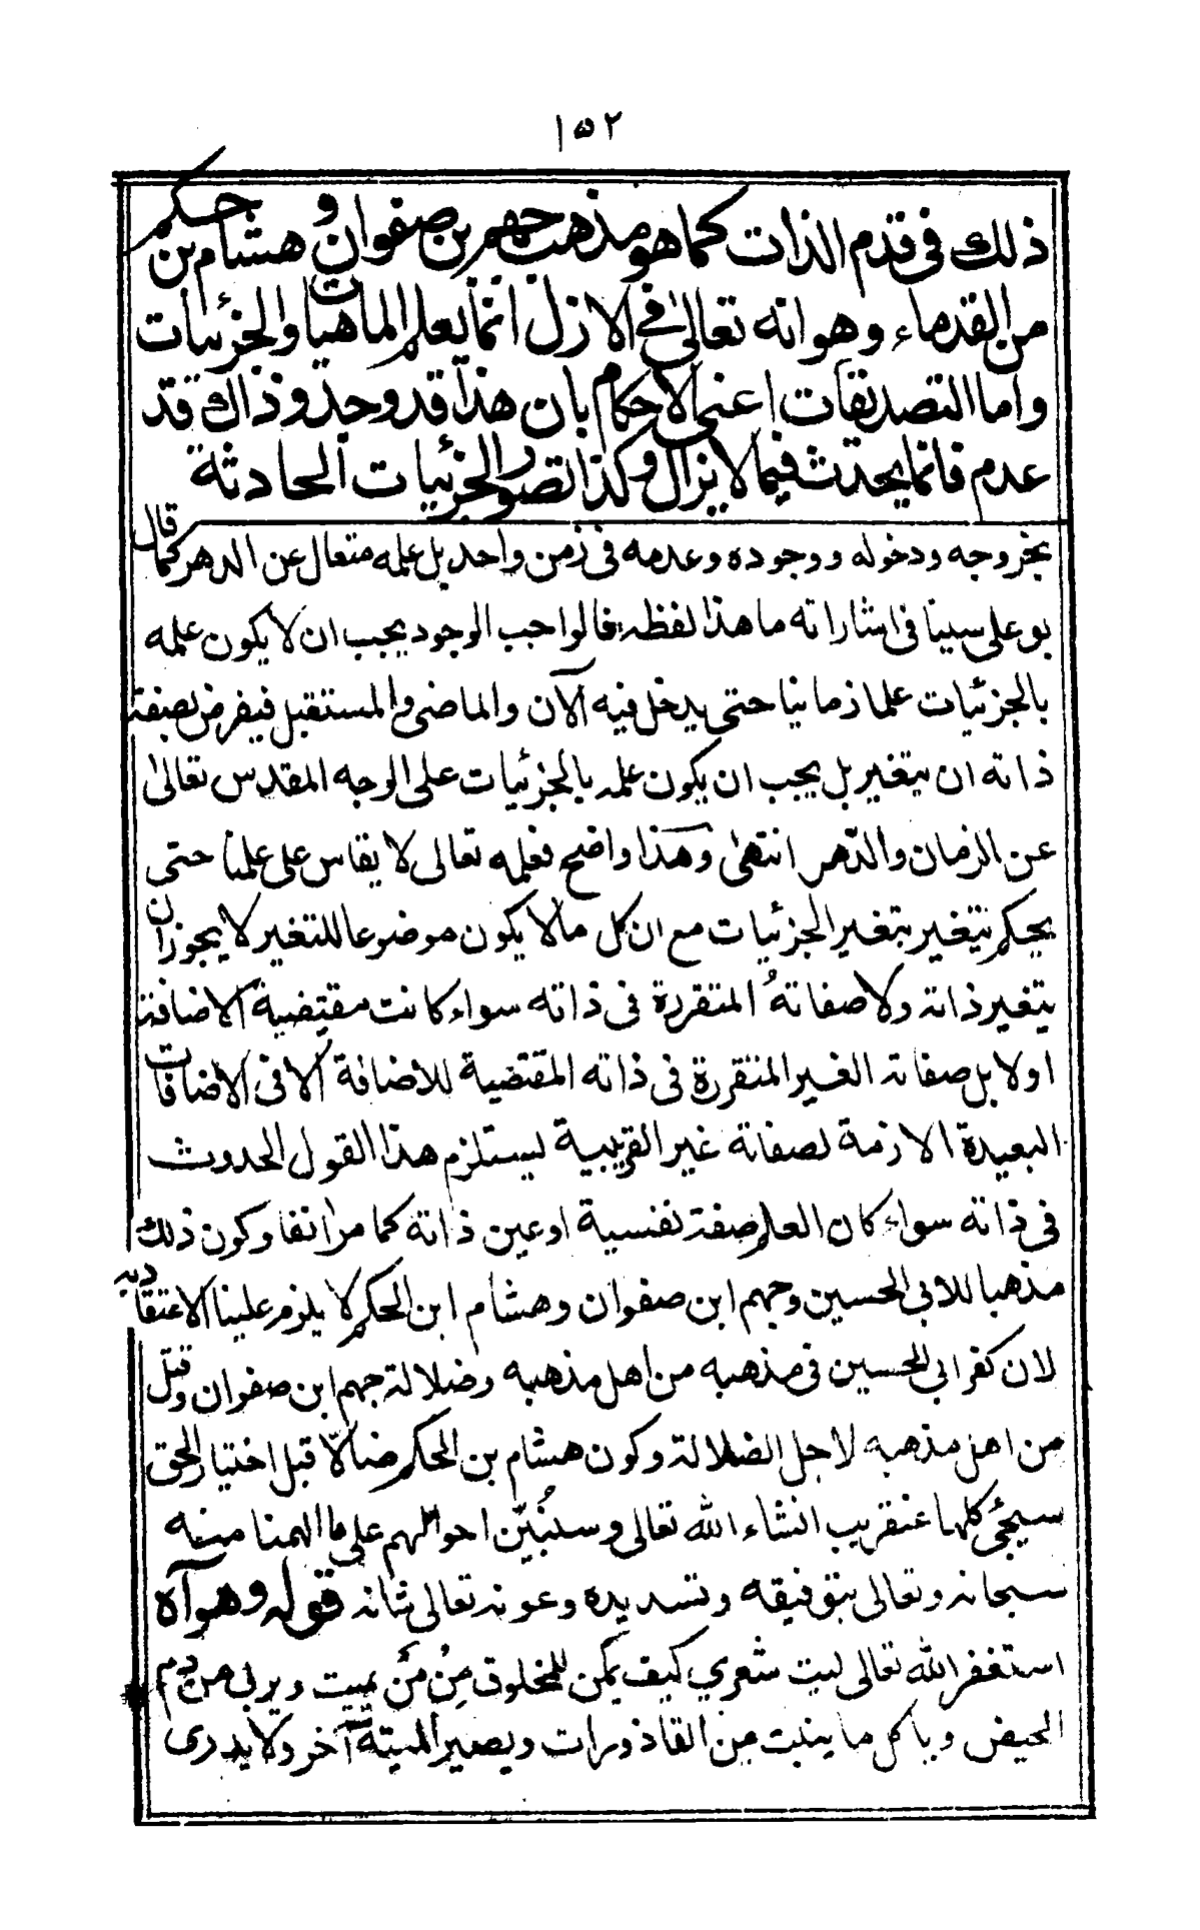 ١٥٢
ذلك فى قدم الذات كما هو مذهب جهم بن صفوان و هشام بن حكم
من القدماء وهو انه تعالىٰ فى الازل انما يعلم الماهيات والجزئيات
واما التصديقات اعنى الاحكام بان هذا قد وجد و ذاك قد
عدم فانما يحدث فيما لا يزال وكذا تصور الجزئيات الحادثة
بخروجه ودخوله ووجوده وعدمه فى زمن واحد بل علمه متعال عن الدهر كما قال
بو على سينا فى اشاراته ما هذا لفظه فالواجب الوجود يجب ان لا يكون علمه
بالجزئيات علما زمانيا حتى يدخل فيه الآن والماضى والمستقبل فيفرض لصفة
ذاته ان يتغير بل يجب ان يكون علمه بالجزئيات على الوجه المقدس تعالىٰ
عن الزمان والدّهر انتهىٰ وهٰذا واضح فعلمه تعالى لا يقاس على علمنا حتى
يحكم بتغير بتغير الجزئيات مع ان كل ما لا يكون موضوعا للتغير لا يجوز ان
يتغير ذاته ولا صفاتهُ المتقررة فى ذاته سواء كانت مقتضية الاضافة
اولا بل صفاته الغير المتقررة فى ذاته المقتضية للاضافة الا فى الاضافات
البعيدة الازمة لصفاتة غير القريبية ليستلزم هذا القول الحدوث
فى ذاته سواء كان العلم صفة نفسية او عين ذاته كما مر انفا وكون ذلك
مذهبا للابى الحسين وجهم ابن صفوان وهشام ابن الحكم لا يلزم علينا الاعتقاد به
لان كفر ابى الحسين فى مذهبه من اهل مذهبه وضلالة جهم ابن صفوان وقتل
من اهل مذهبه لاجل الضلالة وكون هشام بن الحكم ضالاّ قبل اختيار الحق
سيجئ كلها عنقريب انشاء الله تعالى وسنُبيّن احوالهم على ما الهمنا منه
سبحانه وتعالى بتوفيقه وتسديده وعونه تعالى شانه قوله وهو آه
استغفر الله تعالى ليت شعري كيف يمكن للمخلوق مِنْ مَنْ يميت ويربى من دم
الحيض وياكل ما ينبت من القاذورات ويصير الميتة آخر ولا يدرى